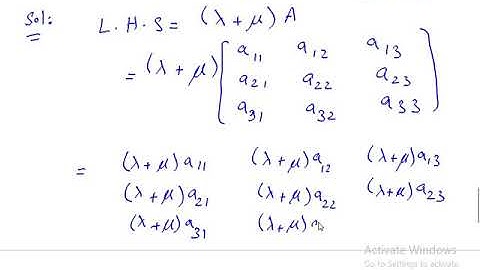 Sol:
L.H.S = (λ+μ) A
= (λ+μ) [ a₁₁ a₁₂ a₁₃
a₂₁ a₂₂ a₂₃
a₃₁ a₃₂ a₃₃ ]
= (λ+μ)a₁₁ (λ+μ)a₁₂ (λ+μ)a₁₃
(λ+μ)a₂₁ (λ+μ)a₂₂ (λ+μ)a₂₃
(λ+μ)a₃₁ (λ+μ)
Activate Windows
Go to Settings to activate